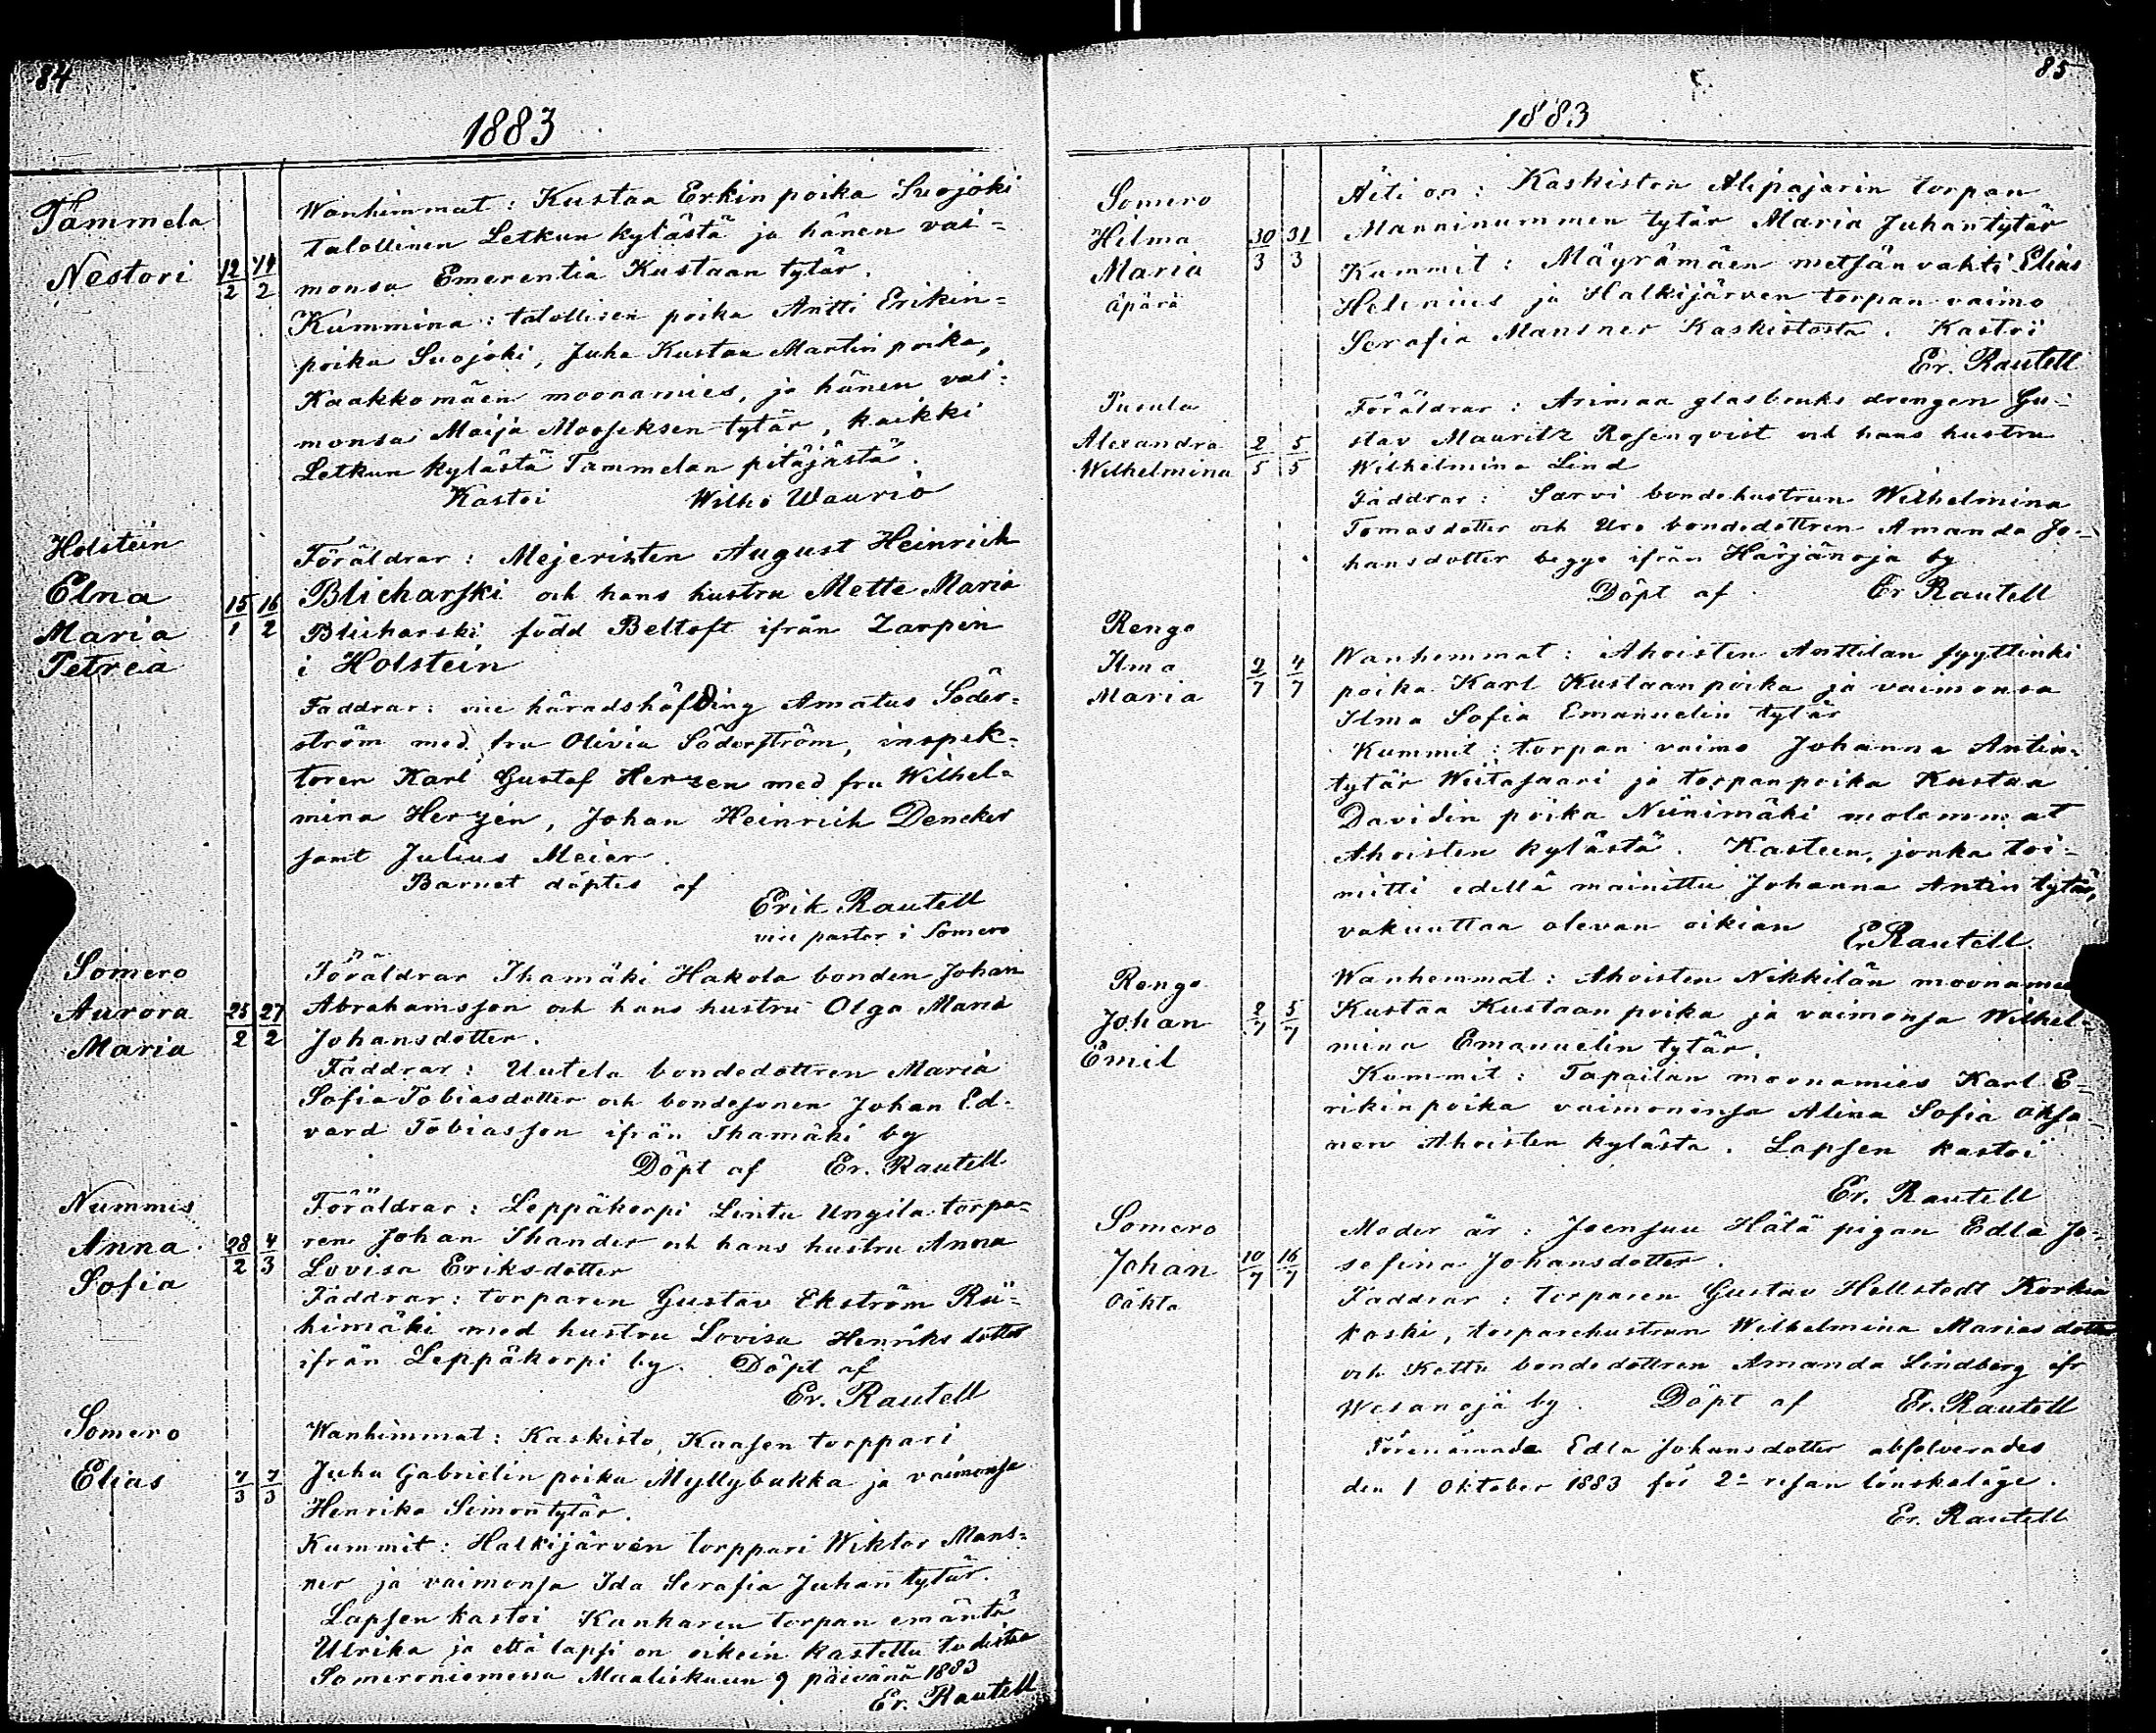 84
1883
Tammela
Nestori
12/2 14/2
Wanhimmat: Kustaa Erkin poika Suojoki
talollinen Letkun kylästä ja hänen vai=
monsa Emerentia Kustaan tytär.
Kummina: talollisen poika Antti Erikin=
poika Suojoki, Juha Kustaa Martin poika,
Kaakkomäen moonamies, ja hänen vai=
monsa Maija Mooseksen tytär, kaikki
Letkun kylästä Tammelan pitäjästä.
Kastoi Wilho Waurio
Holstein
Elna
Maria
Petrea
15/1 16/2
Föräldrar: Mejeristen August Heinrich
Blicharski och hans hustru Mette Maria
Blicharski född Beltoft ifrån Zarpen
i Holstein
Faddrar: vice häradshöfding Amatus Söder=
ström med fru Olivia Söderström, inspek=
toren Karl Gustaf Herzen med fru Wilhel=
mina Herzen, Johan Heinrich Dencker
samt Julius Meier.
Barnet döptes af
Erik Rautell
vice pastor i Somero
Somero
Aurora
Maria
25/2 27/2
Föräldrar Ihamäki Hakola bonden Johan
Abrahamsson och hans hustru Olga Maria
Johansdotter.
Faddrar: Uutela bondedottren Maria
Sofia Tobiasdotter och bondesonen Johan Ed=
vard Tobiasson ifrån Ihamäki by
Döpt af Er. Rautell
Nummis
Anna
Sofia
28/2 4/3
Föräldrar: Leppäkorpi Lintu Ungila torpa=
ren Johan Thander och hans hustru Anna
Lovisa Eriksdotter
Faddrar: torparen Gustav Ekström Rii=
himäki med hustru Lovisa Henriks dotter
ifrån Leppäkorpi by. Döpt af
Er. Rautell
Somero
Elias
7/3 7/3
Wanhimmat: Kaskisto, Kaasen torppari
Juha Gabrielin poika Myllybakka ja vaimonsa
Henrika Simontytär.
Kummit: Halkijärven torppari Wiktor Mans=
ner ja vaimonsa Ida Serafia Juhan tytär.
Lapsen kastoi Kankaren torpan emäntä
Ulrika ja että lapsi on oikein kastettu todistaa
Someroniemessä Maaliskuun 9 päivänä 1883
Er. Rautell
85
1883
Somero
Hilma
Maria
äpärä
30/3 31/3
Äiti on: Kaskiston Alipajarin torpan
Manninummen tytär Maria Juhantytär
Kummit: Mäyrämäen metsänvahti Elias
Helenius ja Halkijärven torpan vaimo
Serafia Mansner Kaskistosta. Kastoi
Er. Rautell
Pusula
Alexandra
Wilhelmina
2/5 5/5
Föräldrar: Arimaa glasbruks drengen Gu=
stav Mauritz Rosenqvist och hans hustru
Wilhelmina Lind
Faddrar: Sarvi bondehustrun Wilhelmina
Tomasdotter och Uro bondedottren Amanda Jo=
hansdotter begge ifrån Härjänoja by
Döpt af Er Rautell
Rengo
Ilma
Maria
2/7 4/7
Wanhemmat: Ahoisten Anttilan syyttinki
poika Karl Kustaanpoika ja vaimonsa
Ilma Sofia Emanuelin tytär
Kummit: torpan vaimo Johanna Antin=
tytär Wiitasaari ja torpanpoika Kustaa
Davidin poika Niinimäki molemmat
Ahoisten kylästä. Kasteen, jonka toi=
mitti edellä mainittu Johanna Antin tytär,
vakuuttaa olevan oikian
Er Rautell.
Rengo
Johan
Emil
2/7 5/7
Wanhemmat: Ahoisten Nikkilän moonamies
Kustaa Kustaan poika ja vaimonsa Wilhel=
mina Emanuelin tytär.
Kummit: Tapailan moonamies Karl E=
rikinpoika vaimoninsa Alina Sofia Oksa
nen Ahoisten kylästä. Lapsen kastoi
Er. Rautell
Somero
Johan
oäkta
10/7 16/7
Moder är: Joensuu Hätä pigan Edla Jo=
sefina Johansdotter.
Faddrar: torparen Gustav Hellstedt Korkia
koski, torparehustrun Wilhelmina Mariasdotter
och Kettu bondedottren Amanda Lindberg ifr
Wesanoja by. Döpt af Er. Rautell
Förenämnda Edla Johansdotter absolverades
den 1 Oktober 1883 för 2a resan lönskaläge.
Er. Rautell